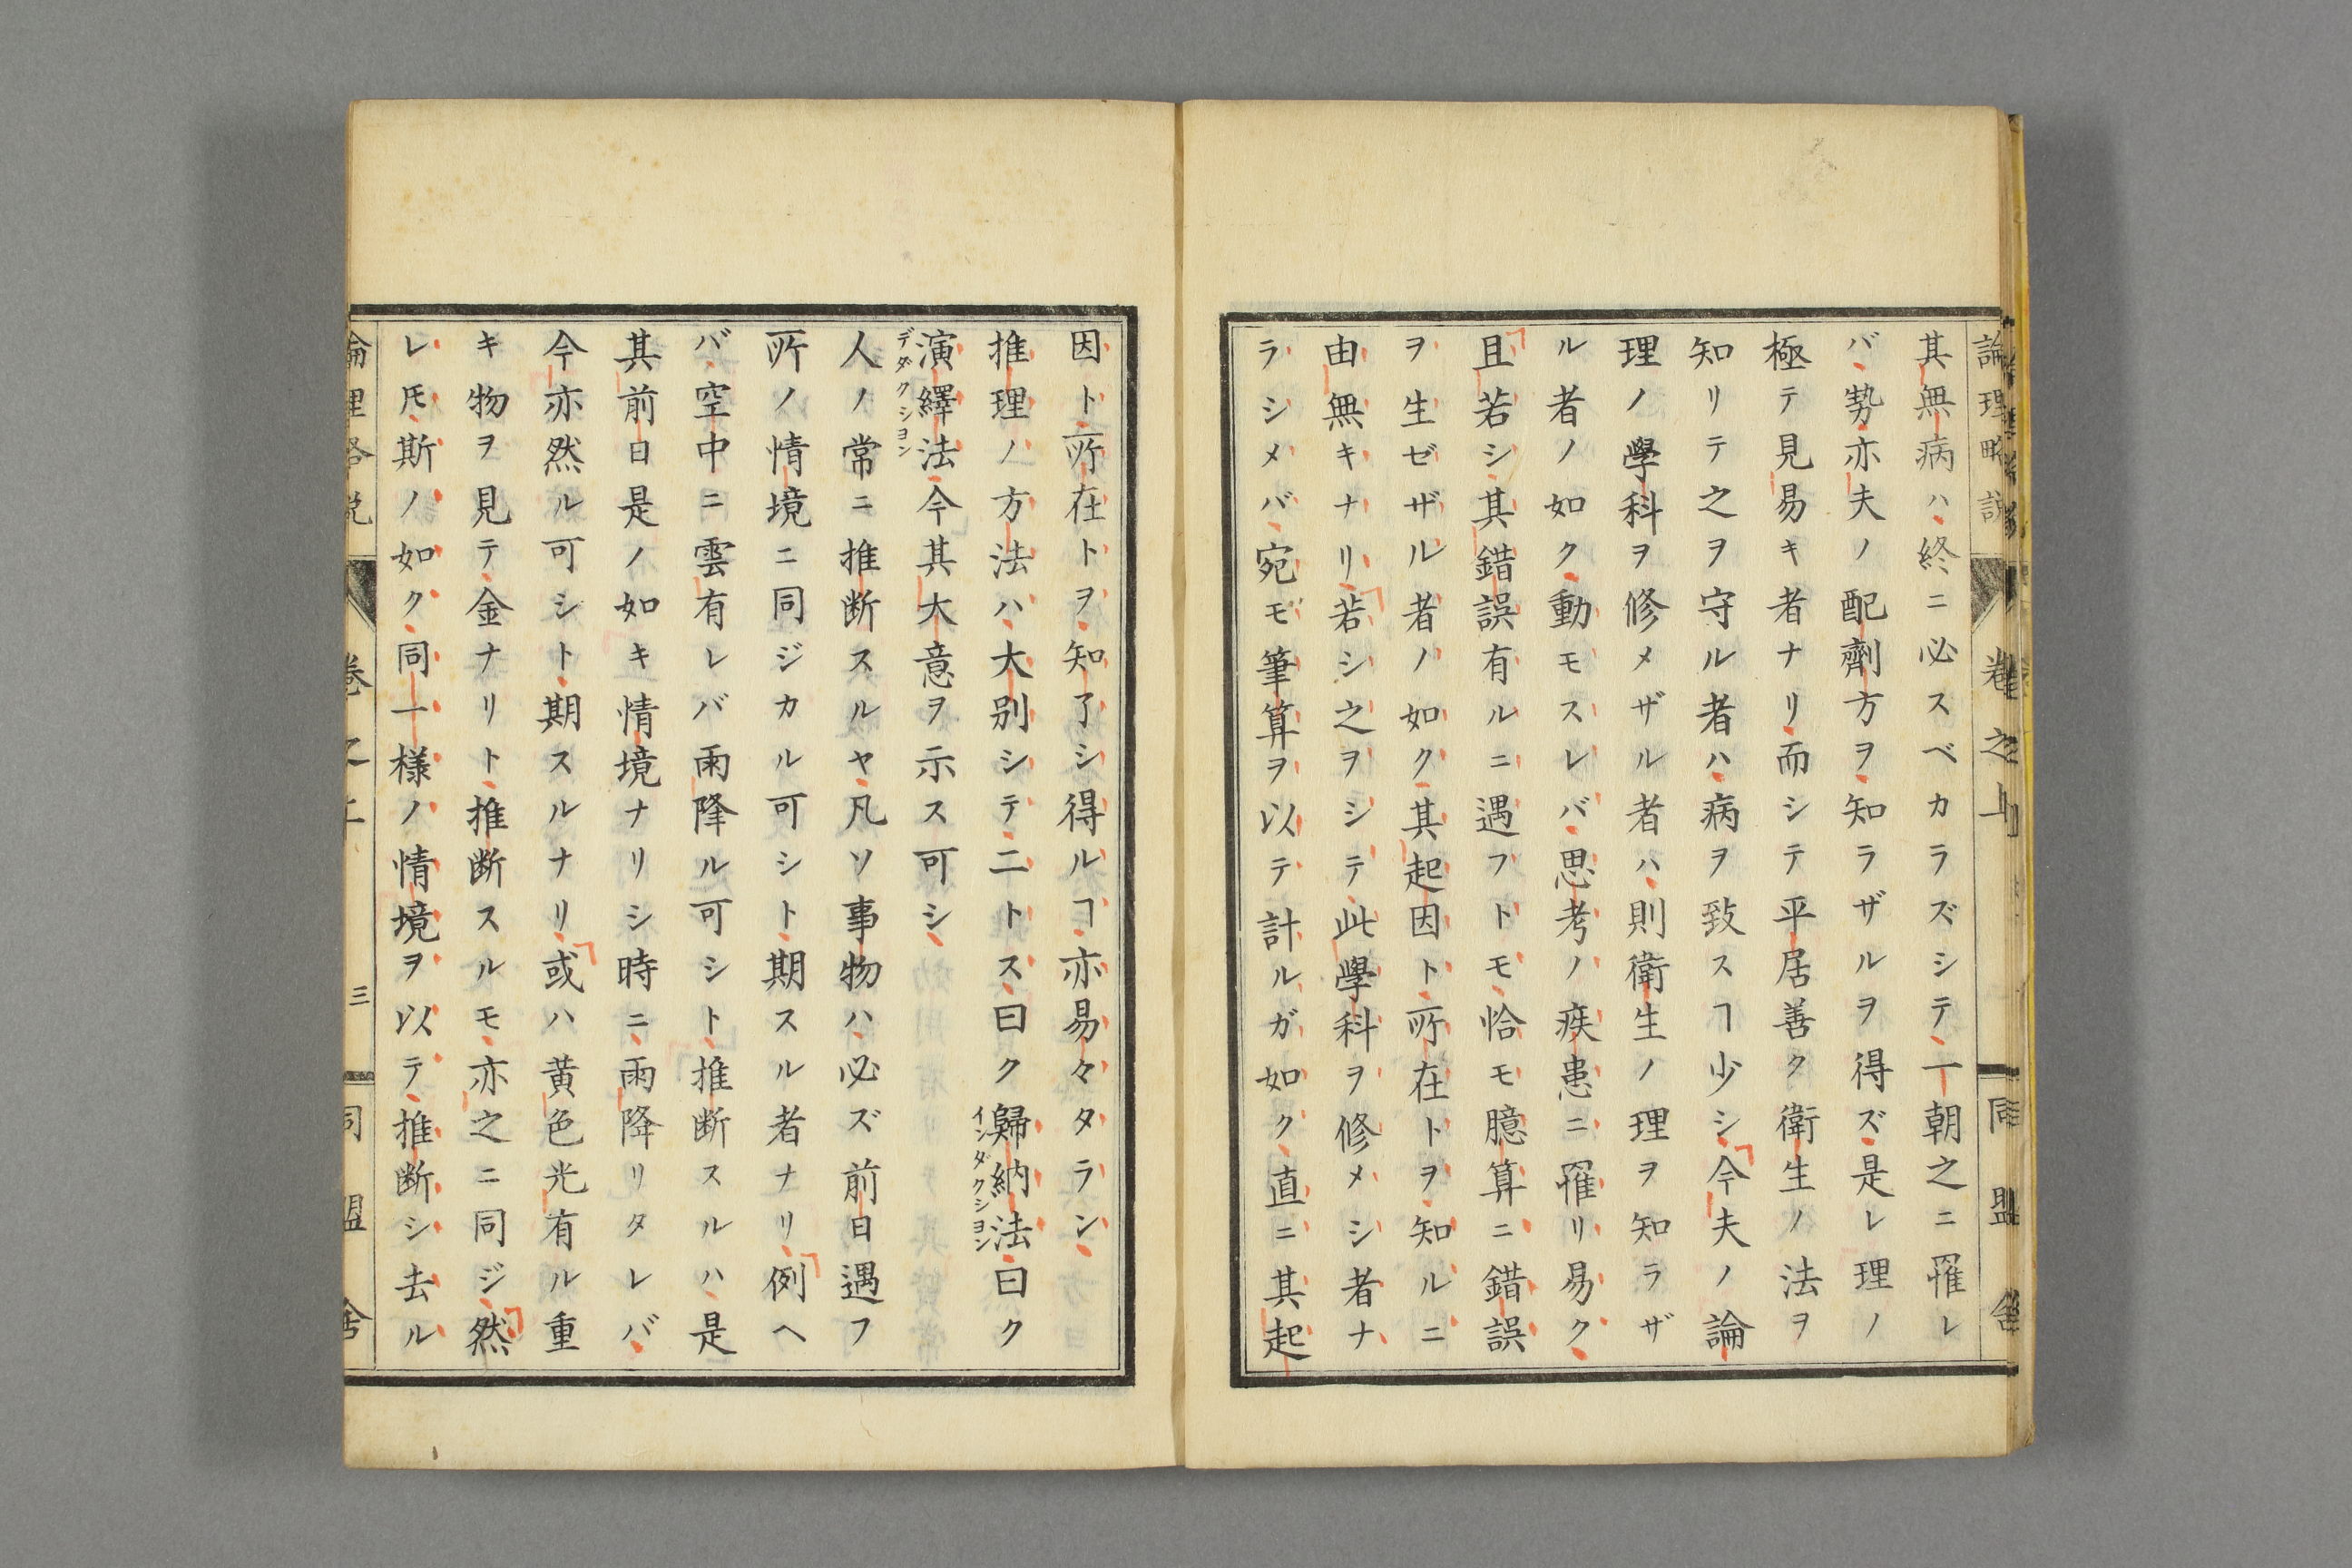 論理略説　卷之上　同盟舎
其無病ハ終ニ必スベカラズシテ一朝之ニ罹レ
バ勢亦夫ノ配劑方ヲ知ラザルヲ得ズ是レ理ノ
極テ見易キ者ナリ而シテ平居善ク衛生ノ法ヲ
知リテ之ヲ守ル者ハ病ヲ致スヿ少シ今夫ノ論
理ノ學科ヲ修メザル者ハ則衛生ノ理ヲ知ラザ
ル者ノ如ク動モスレバ思考ノ疾患ニ罹リ易ク
且若シ其錯誤有ルニ遇フトモ恰モ臆算ニ錯誤
ヲ生ゼザル者ノ如ク其起因ト所在トヲ知ルニ
由無キナリ若シ之ヲシテ此學科ヲ修メシ者ナ
ラシメバ宛モ筆算ヲ以テ計ルガ如ク直ニ其起
因ト所在トヲ知了シ得ルヿ亦易々タラン
推理ノ方法ハ大別シテ二トス曰ク歸納法曰ク
インダクシヨン
演繹法今其大意ヲ示ス可シ
デダクシヨン
人ノ常ニ推断スルヤ凡ソ事物ハ必ズ前日遇フ
所ノ情境ニ同ジカル可シト期スル者ナリ例ヘ
バ空中ニ雲有レバ雨降ル可シト推断スルハ是
其前日是ノ如キ情境ナリシ時ニ雨降リタレバ
今亦然ル可シト期スルナリ或ハ黄色光有ル重
キ物ヲ見テ金ナリト推断スルモ亦之ニ同ジ然
レ𪜈斯ノ如ク同一様ノ情境ヲ以テ推断シ去ル
論理略説　卷之上　三　同盟舎